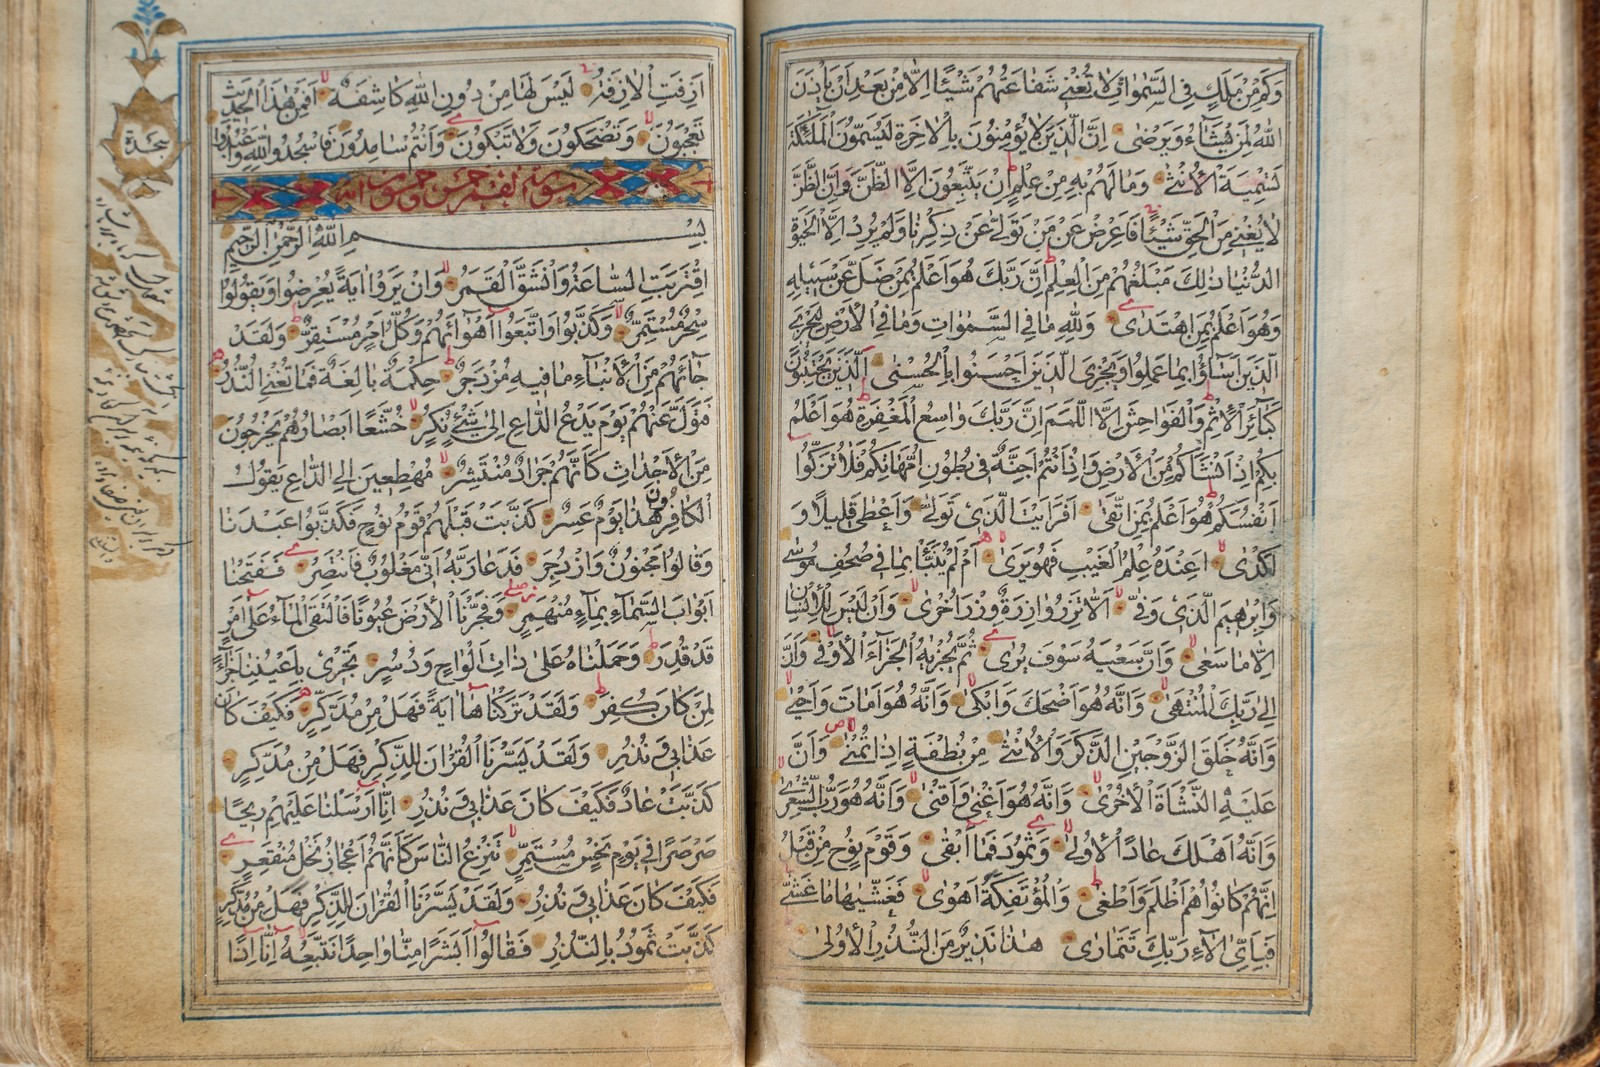 وَكَمْ مِنْ مَلَكٍ فِي السَّمٰوَاتِ لَا تُغْنِي شَفَاعَتُهُمْ شَيْئًا اِلَّا مِنْ بَعْدِ اَنْ يَاْذَنَ
اللهُ لِمَنْ يَشَاءُ وَيَرْضٰى اِنَّ الَّذِينَ لَا يُؤْمِنُونَ بِالْاٰخِرَةِ لَيُسَمُّونَ الْمَلٰئِكَةَ
تَسْمِيَةَ الْاُنْثٰى وَمَا لَهُمْ بِهِ مِنْ عِلْمٍ اِنْ يَتَّبِعُونَ اِلَّا الظَّنَّ وَاِنَّ الظَّنَّ
لَا يُغْنِي مِنَ الْحَقِّ شَيْئًا فَاَعْرِضْ عَنْ مَنْ تَوَلّٰى عَنْ ذِكْرِنَا وَلَمْ يُرِدْ اِلَّا الْحَيٰوةَ
الدُّنْيَا ذٰلِكَ مَبْلَغُهُمْ مِنَ الْعِلْمِ اِنَّ رَبَّكَ هُوَ اَعْلَمُ بِمَنْ ضَلَّ عَنْ سَبِيلِهِ
وَهُوَ اَعْلَمُ بِمَنِ اهْتَدٰى وَلِلّٰهِ مَا فِي السَّمٰوَاتِ وَمَا فِي الْاَرْضِ لِيَجْزِيَ
الَّذِينَ اَسَاؤُا بِمَا عَمِلُوا وَيَجْزِيَ الَّذِينَ اَحْسَنُوا بِالْحُسْنٰى اَلَّذِينَ يَجْتَنِبُونَ
كَبَائِرَ الْاِثْمِ وَالْفَوَاحِشَ اِلَّا اللَّمَمَ اِنَّ رَبَّكَ وَاسِعُ الْمَغْفِرَةِ هُوَ اَعْلَمُ
بِكُمْ اِذْ اَنْشَاَكُمْ مِنَ الْاَرْضِ وَاِذْ اَنْتُمْ اَجِنَّةٌ فِي بُطُونِ اُمَّهَاتِكُمْ فَلَا تُزَكُّوا
اَنْفُسَكُمْ هُوَ اَعْلَمُ بِمَنِ اتَّقٰى اَفَرَاَيْتَ الَّذِي تَوَلّٰى وَاَعْطٰى قَلِيلًا وَ
اَكْدٰى اَعِنْدَهُ عِلْمُ الْغَيْبِ فَهُوَ يَرٰى اَمْ لَمْ يُنَبَّاْ بِمَا فِي صُحُفِ مُوسٰى
وَاِبْرٰهِيمَ الَّذِي وَفّٰى اَلَّا تَزِرُ وَازِرَةٌ وِزْرَ اُخْرٰى وَاَنْ لَيْسَ لِلْاِنْسَانِ
اِلَّا مَا سَعٰى وَاَنَّ سَعْيَهُ سَوْفَ يُرٰى ثُمَّ يُجْزٰيهُ الْجَزَاءَ الْاَوْفٰى وَاَنَّ
اِلٰى رَبِّكَ الْمُنْتَهٰى وَاَنَّهُ هُوَ اَضْحَكَ وَاَبْكٰى وَاَنَّهُ هُوَ اَمَاتَ وَاَحْيٰى
وَاَنَّهُ خَلَقَ الزَّوْجَيْنِ الذَّكَرَ وَالْاُنْثٰى مِنْ نُطْفَةٍ اِذَا تُمْنٰى وَاَنَّ
عَلَيْهِ النَّشْاَةَ الْاُخْرٰى وَاَنَّهُ هُوَ اَغْنٰى وَاَقْنٰى وَاَنَّهُ هُوَ رَبُّ الشِّعْرٰى
وَاَنَّهُ اَهْلَكَ عَادًا الْاُولٰى وَثَمُودَ فَمَا اَبْقٰى وَقَوْمَ نُوحٍ مِنْ قَبْلُ
اِنَّهُمْ كَانُوا هُمْ اَظْلَمَ وَاَطْغٰى وَالْمُؤْتَفِكَةَ اَهْوٰى فَغَشّٰيهَا مَا غَشّٰى
فَبِاَيِّ اٰلَاءِ رَبِّكَ تَتَمَارٰى هٰذَا نَذِيرٌ مِنَ النُّذُرِ الْاُولٰى
اَزِفَتِ الْاٰزِفَةُ لَيْسَ لَهَا مِنْ دُونِ اللهِ كَاشِفَةٌ اَفَمِنْ هٰذَا الْحَدِيثِ
تَعْجَبُونَ وَتَضْحَكُونَ وَلَا تَبْكُونَ وَاَنْتُمْ سَامِدُونَ فَاسْجُدُوا لِلّٰهِ وَاعْبُدُوا
سجدة
سورة القمر خمس وخمسون اية
بِسْمِ اللهِ الرَّحْمٰنِ الرَّحِيمِ
اِقْتَرَبَتِ السَّاعَةُ وَانْشَقَّ الْقَمَرُ وَاِنْ يَرَوْا اٰيَةً يُعْرِضُوا وَيَقُولُوا
سِحْرٌ مُسْتَمِرٌّ وَكَذَّبُوا وَاتَّبَعُوا اَهْوَائَهُمْ وَكُلُّ اَمْرٍ مُسْتَقِرٌّ وَلَقَدْ
جَائَهُمْ مِنَ الْاَنْبَاءِ مَا فِيهِ مُزْدَجَرٌ حِكْمَةٌ بَالِغَةٌ فَمَا تُغْنِ النُّذُرُ
فَتَوَلَّ عَنْهُمْ يَوْمَ يَدْعُ الدَّاعِ اِلٰى شَيْءٍ نُكُرٍ خُشَّعًا اَبْصَارُهُمْ يَخْرُجُونَ
مِنَ الْاَجْدَاثِ كَاَنَّهُمْ جَرَادٌ مُنْتَشِرٌ مُهْطِعِينَ اِلَى الدَّاعِ يَقُولُ
الْكَافِرُونَ هٰذَا يَوْمٌ عَسِرٌ كَذَّبَتْ قَبْلَهُمْ قَوْمُ نُوحٍ فَكَذَّبُوا عَبْدَنَا
وَقَالُوا مَجْنُونٌ وَازْدُجِرَ فَدَعَا رَبَّهُ اَنِّي مَغْلُوبٌ فَانْتَصِرْ فَفَتَحْنَا
اَبْوَابَ السَّمَاءِ بِمَاءٍ مُنْهَمِرٍ وَفَجَّرْنَا الْاَرْضَ عُيُونًا فَالْتَقَى الْمَاءُ عَلٰى اَمْرٍ
قَدْ قُدِرَ وَحَمَلْنَاهُ عَلٰى ذَاتِ اَلْوَاحٍ وَدُسُرٍ تَجْرِي بِاَعْيُنِنَا جَزَاءً
لِمَنْ كَانَ كُفِرَ وَلَقَدْ تَرَكْنَاهَا اٰيَةً فَهَلْ مِنْ مُدَّكِرٍ فَكَيْفَ كَانَ
عَذَابِي وَنُذُرِ وَلَقَدْ يَسَّرْنَا الْقُرْاٰنَ لِلذِّكْرِ فَهَلْ مِنْ مُدَّكِرٍ
كَذَّبَتْ عَادٌ فَكَيْفَ كَانَ عَذَابِي وَنُذُرِ اِنَّا اَرْسَلْنَا عَلَيْهِمْ رِيحًا
صَرْصَرًا فِي يَوْمِ نَحْسٍ مُسْتَمِرٍّ تَنْزِعُ النَّاسَ كَاَنَّهُمْ اَعْجَازُ نَخْلٍ مُنْقَعِرٍ
فَكَيْفَ كَانَ عَذَابِي وَنُذُرِ وَلَقَدْ يَسَّرْنَا الْقُرْاٰنَ لِلذِّكْرِ فَهَلْ مِنْ مُدَّكِرٍ
كَذَّبَتْ ثَمُودُ بِالنُّذُرِ فَقَالُوا اَبَشَرًا مِنَّا وَاحِدًا نَتَّبِعُهُ اِنَّا اِذًا